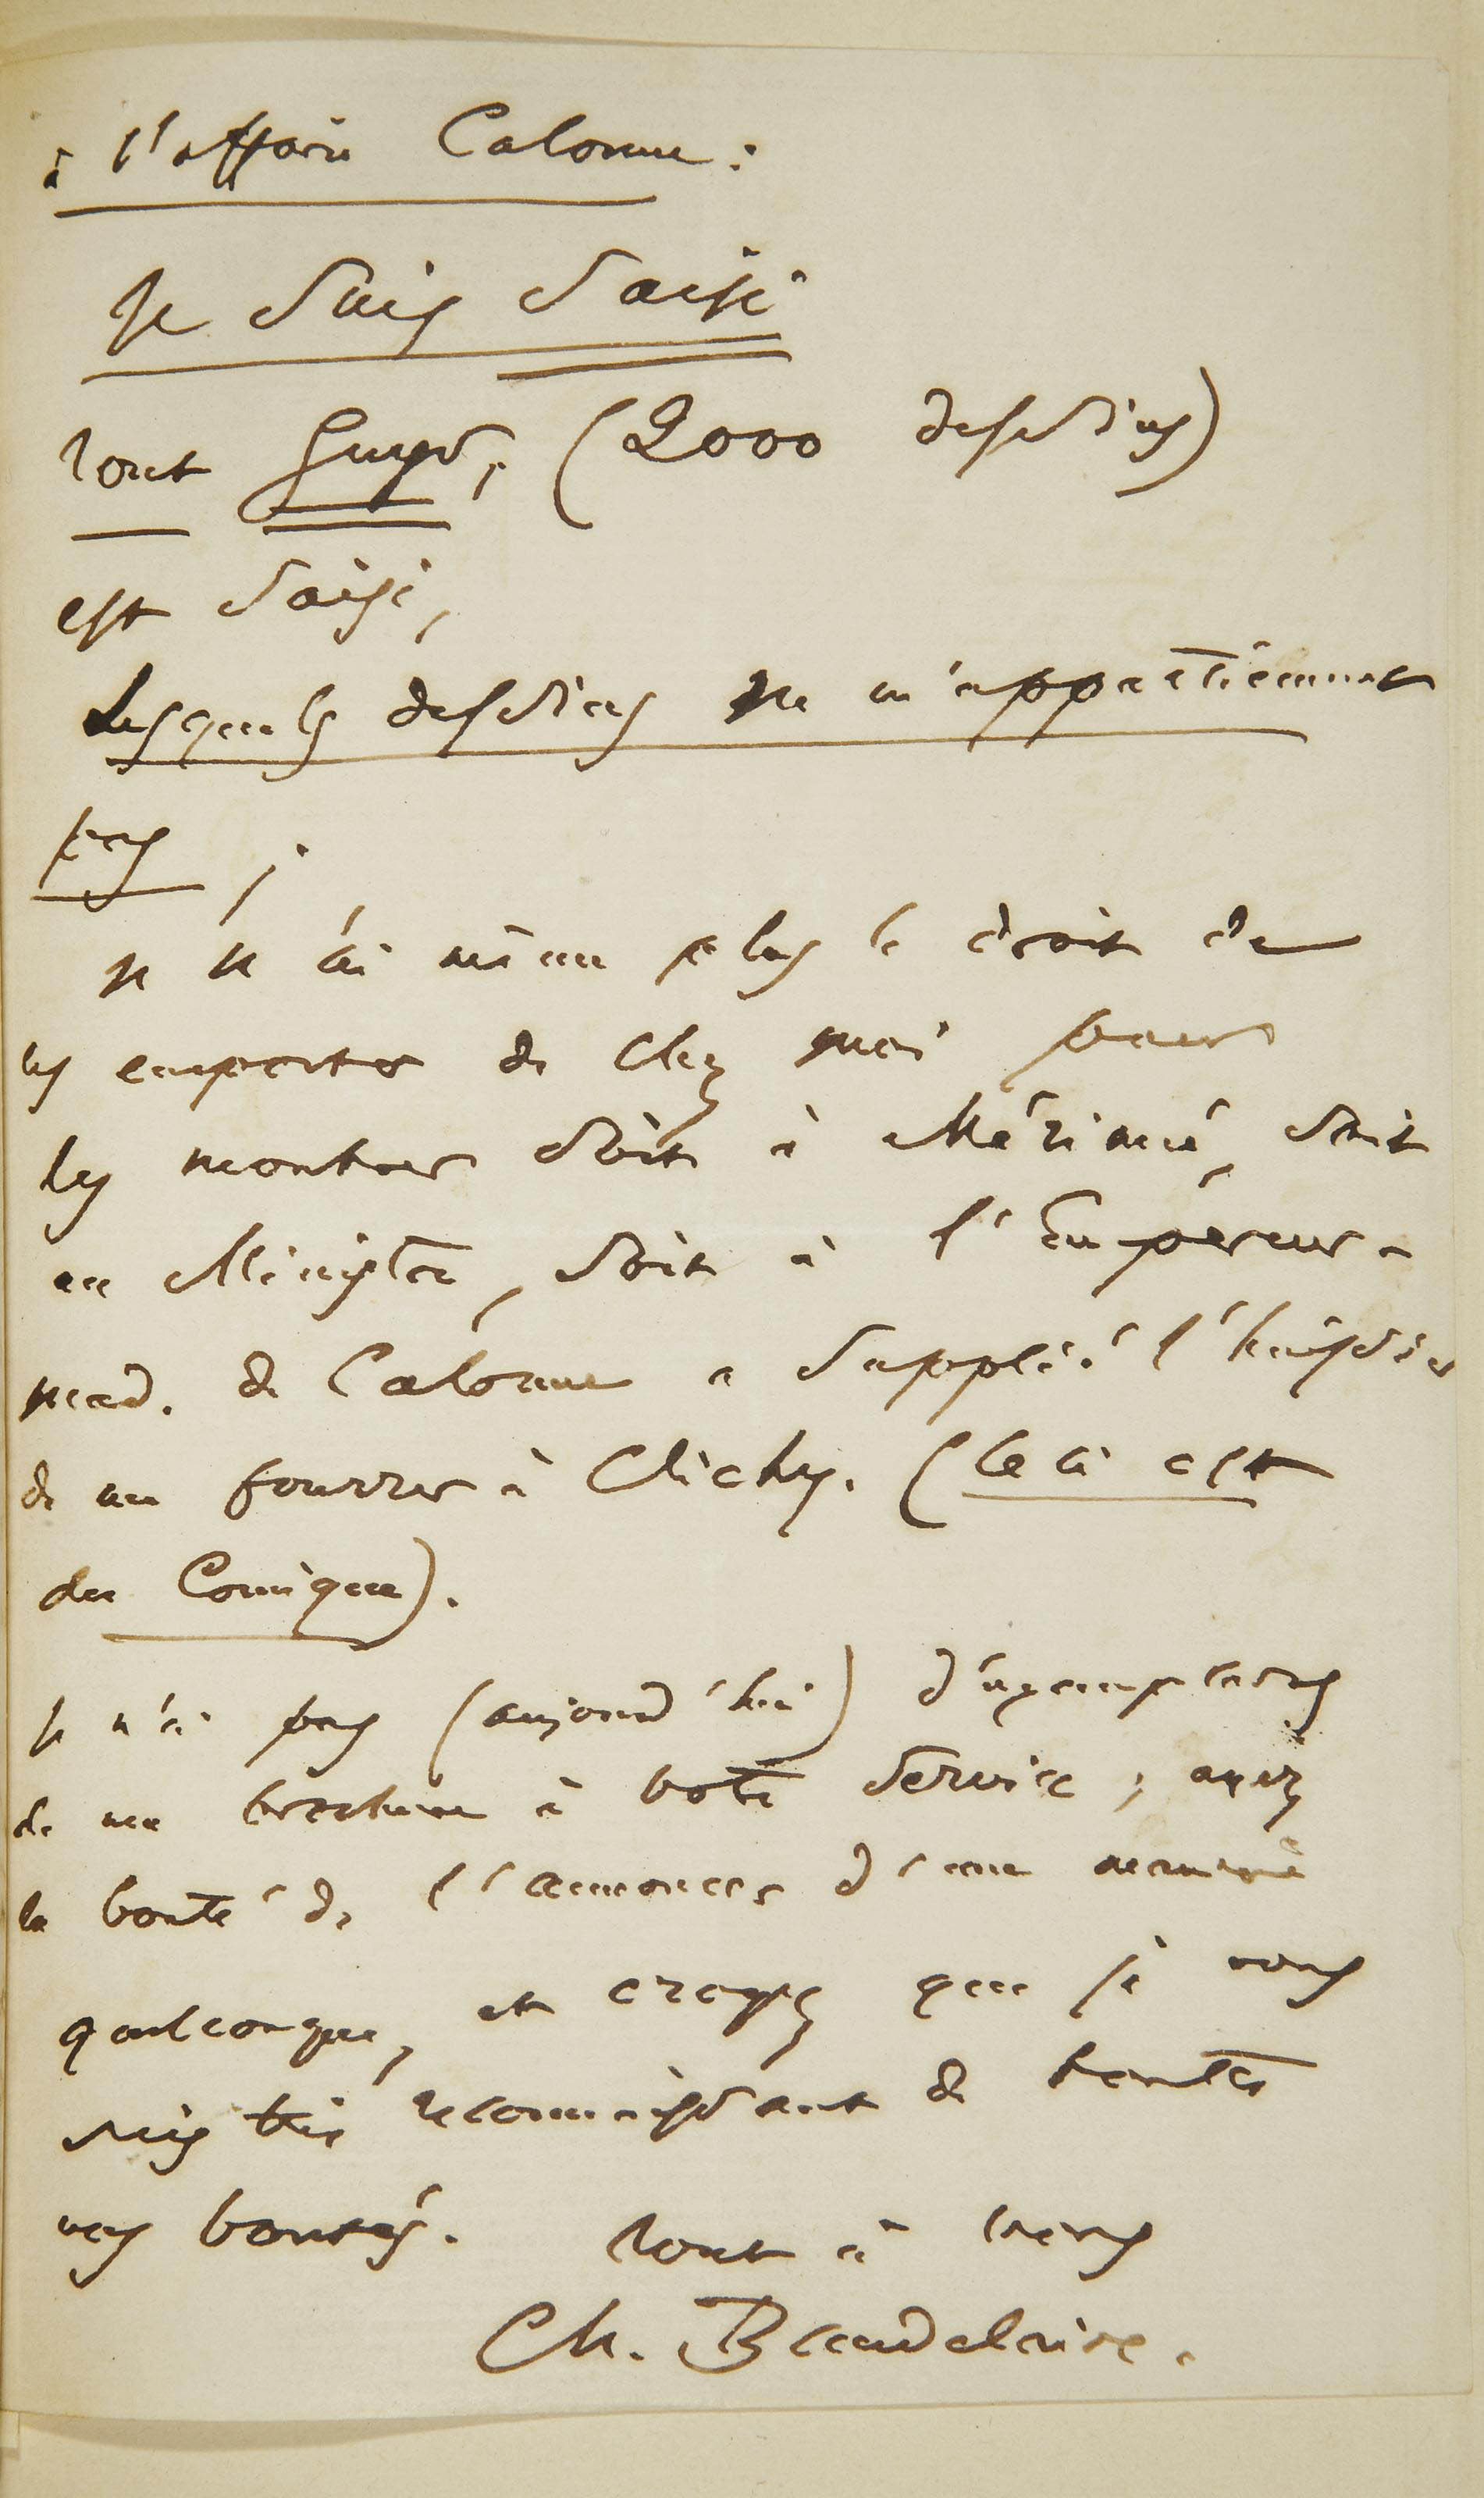 à l'affaire Calonne :
Je suis saisi
tout Guys, (2000 dessins)
est saisi,
Lesquels dessins ne m'appartiennent
pas ;
Je n'ai même plus le droit de
les emporter de chez moi pour
les montrer soit à Mérimée, soit
au Ministre, soit à l'Empereur -
mad. de Calonne a supplié l'huissier
de me fourrer à Clichy. (Ceci est
du Comique).
Je n'ai pas (aujourd'hui) d'exemplaires
de ma brochure à votre service ; ayez
la bonté de l'annoncer d'une manière
quelconque, et croyez que je vous
suis très reconnaissant de toutes
vos bontés. Tout à vous
Ch. Baudelaire.